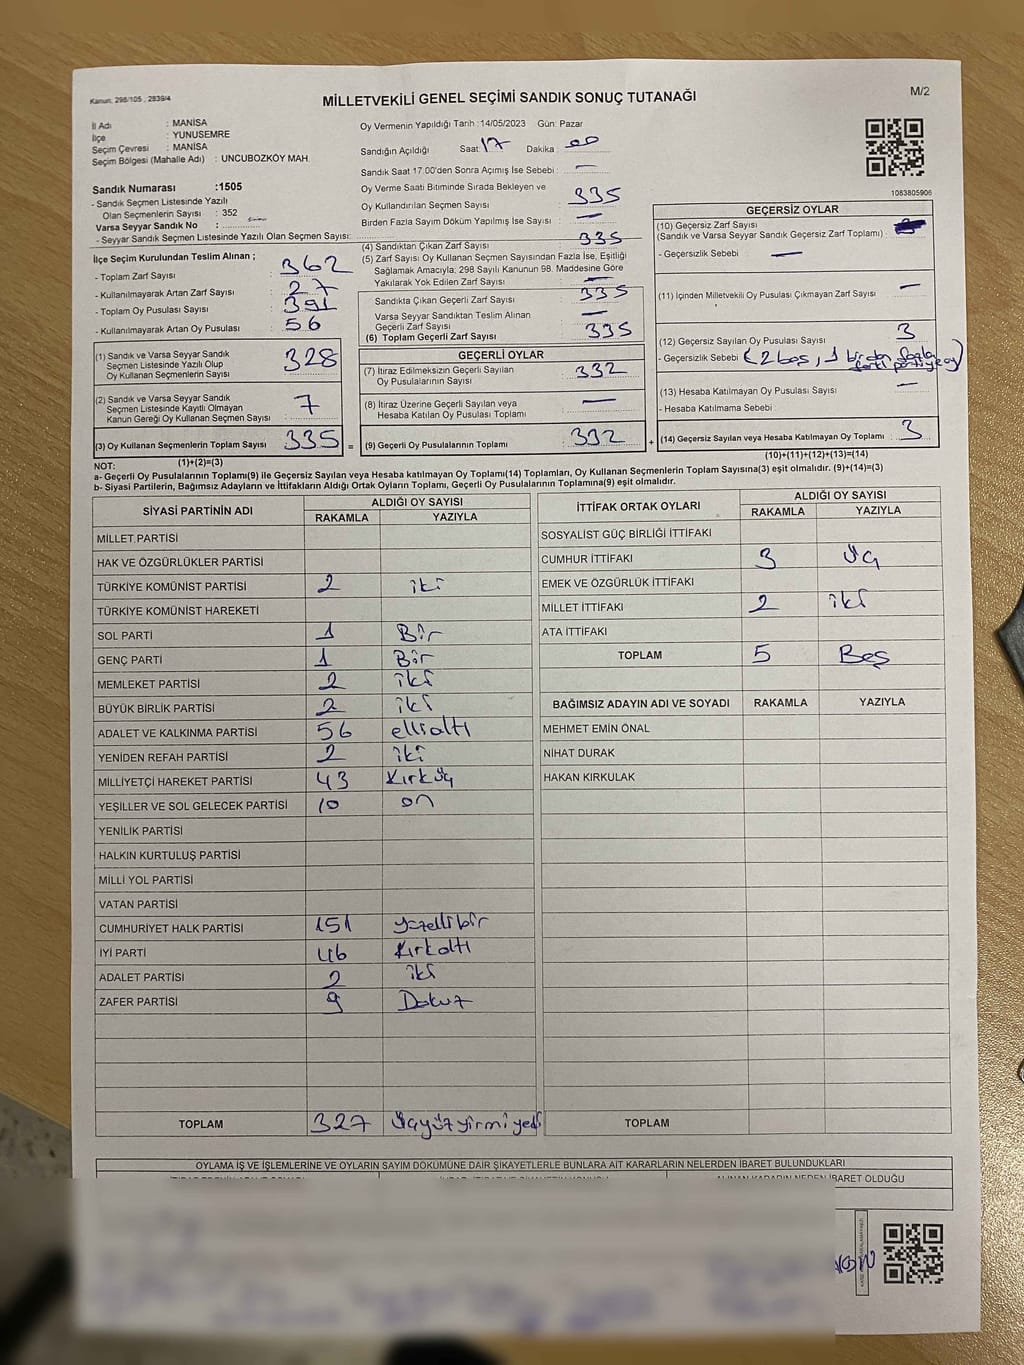 Kanun: 298/105 , 2839/4
MİLLETVEKİLİ GENEL SEÇİMİ SANDIK SONUÇ TUTANAĞI
M/2
İl Adı : MANİSA
İlçe : YUNUSEMRE
Seçim Çevresi : MANİSA
Seçim Bölgesi (Mahalle Adı) : UNCUBOZKÖY MAH.
Oy Vermenin Yapıldığı Tarih :14/05/2023 Gün: Pazar
Sandığın Açıldığı Saat 17 Dakika 00
Sandık Saat 17.00'den Sonra Açımış İse Sebebi : —
Oy Verme Saati Bitiminde Sırada Bekleyen ve
Oy Kullandırılan Seçmen Sayısı : 335
Birden Fazla Sayım Döküm Yapılmış İse Sayısı : —
1083805906
Sandık Numarası :1505
- Sandık Seçmen Listesinde Yazılı
Olan Seçmenlerin Sayısı : 352
Varsa Seyyar Sandık No :
- Seyyar Sandık Seçmen Listesinde Yazılı Olan Seçmen Sayısı:
İlçe Seçim Kurulundan Teslim Alınan ;
- Toplam Zarf Sayısı : 362
- Kullanılmayarak Artan Zarf Sayısı : 27
- Toplam Oy Pusulası Sayısı : 391
- Kullanılmayarak Artan Oy Pusulası : 56
(1) Sandık ve Varsa Seyyar Sandık
Seçmen Listesinde Yazılı Olup
Oy Kullanan Seçmenlerin Sayısı : 328
(2) Sandık ve Varsa Seyyar Sandık
Seçmen Listesinde Kayıtlı Olmayan
Kanun Gereği Oy Kullanan Seçmen Sayısı : 7
(3) Oy Kullanan Seçmenlerin Toplam Sayısı : 335 =
(1)+(2)=(3)
(4) Sandıktan Çıkan Zarf Sayısı : 335
(5) Zarf Sayısı Oy Kullanan Seçmen Sayısından Fazla İse, Eşitliği
Sağlamak Amacıyla; 298 Sayılı Kanunun 98. Maddesine Göre
Yakılarak Yok Edilen Zarf Sayısı : —
Sandıkta Çıkan Geçerli Zarf Sayısı : 335
Varsa Seyyar Sandıktan Teslim Alınan
Geçerli Zarf Sayısı : —
(6) Toplam Geçerli Zarf Sayısı : 335
GEÇERLİ OYLAR
(7) İtiraz Edilmeksizin Geçerli Sayılan
Oy Pusulalarının Sayısı : 332
(8) İtiraz Üzerine Geçerli Sayılan veya
Hesaba Katılan Oy Pusulası Toplamı : —
(9) Geçerli Oy Pusulalarının Toplamı : 332 +
GEÇERSİZ OYLAR
(10) Geçersiz Zarf Sayısı
(Sandık ve Varsa Seyyar Sandık Geçersiz Zarf Toplamı) :
- Geçersizlik Sebebi : —
(11) İçinden Milletvekili Oy Pusulası Çıkmayan Zarf Sayısı : —
(12) Geçersiz Sayılan Oy Pusulası Sayısı : 3
- Geçersizlik Sebebi : (2 boş, 1 birden fazla
farklı partiye oy)
(13) Hesaba Katılmayan Oy Pusulası Sayısı : —
- Hesaba Katılmama Sebebi :
(14) Geçersiz Sayılan veya Hesaba Katılmayan Oy Toplamı : 3
(10)+(11)+(12)+(13)=(14)
NOT:
a- Geçerli Oy Pusulalarının Toplamı(9) ile Geçersiz Sayılan veya Hesaba katılmayan Oy Toplamı(14) Toplamları, Oy Kullanan Seçmenlerin Toplam Sayısına(3) eşit olmalıdır. (9)+(14)=(3)
b- Siyasi Partilerin, Bağımsız Adayların ve İttifakların Aldığı Ortak Oyların Toplamı, Geçerli Oy Pusulalarının Toplamına(9) eşit olmalıdır.
SİYASİ PARTİNİN ADI ALDIĞI OY SAYISI
RAKAMLA YAZIYLA
MİLLET PARTİSİ
HAK VE ÖZGÜRLÜKLER PARTİSİ
TÜRKİYE KOMÜNİST PARTİSİ 2 iki
TÜRKİYE KOMÜNİST HAREKETİ
SOL PARTİ 1 Bir
GENÇ PARTİ 1 Bir
MEMLEKET PARTİSİ 2 iki
BÜYÜK BİRLİK PARTİSİ 2 iki
ADALET VE KALKINMA PARTİSİ 56 ellialtı
YENİDEN REFAH PARTİSİ 2 iki
MİLLİYETÇİ HAREKET PARTİSİ 43 Kırküç
YEŞİLLER VE SOL GELECEK PARTİSİ 10 on
YENİLİK PARTİSİ
HALKIN KURTULUŞ PARTİSİ
MİLLİ YOL PARTİSİ
VATAN PARTİSİ
CUMHURİYET HALK PARTİSİ 151 yüzellibir
İYİ PARTİ 46 Kırkaltı
ADALET PARTİSİ 2 iki
ZAFER PARTİSİ 9 Dokuz
TOPLAM 327 Üçyüzyirmiyedi
İTTİFAK ORTAK OYLARI ALDIĞI OY SAYISI
RAKAMLA YAZIYLA
SOSYALİST GÜÇ BİRLİĞİ İTTİFAKI
CUMHUR İTTİFAKI 3 Üç
EMEK VE ÖZGÜRLÜK İTTİFAKI
MİLLET İTTİFAKI 2 iki
ATA İTTİFAKI
TOPLAM 5 Beş
BAĞIMSIZ ADAYIN ADI VE SOYADI RAKAMLA YAZIYLA
MEHMET EMİN ÖNAL
NİHAT DURAK
HAKAN KIRKULAK
TOPLAM
OYLAMA İŞ VE İŞLEMLERİNE VE OYLARIN SAYIM DÖKÜMÜNE DAİR ŞİKAYETLERLE BUNLARA AİT KARARLARIN NELERDEN İBARET BULUNDUKLARI
ALINAN KARARIN NEDEN İBARET OLDUĞU